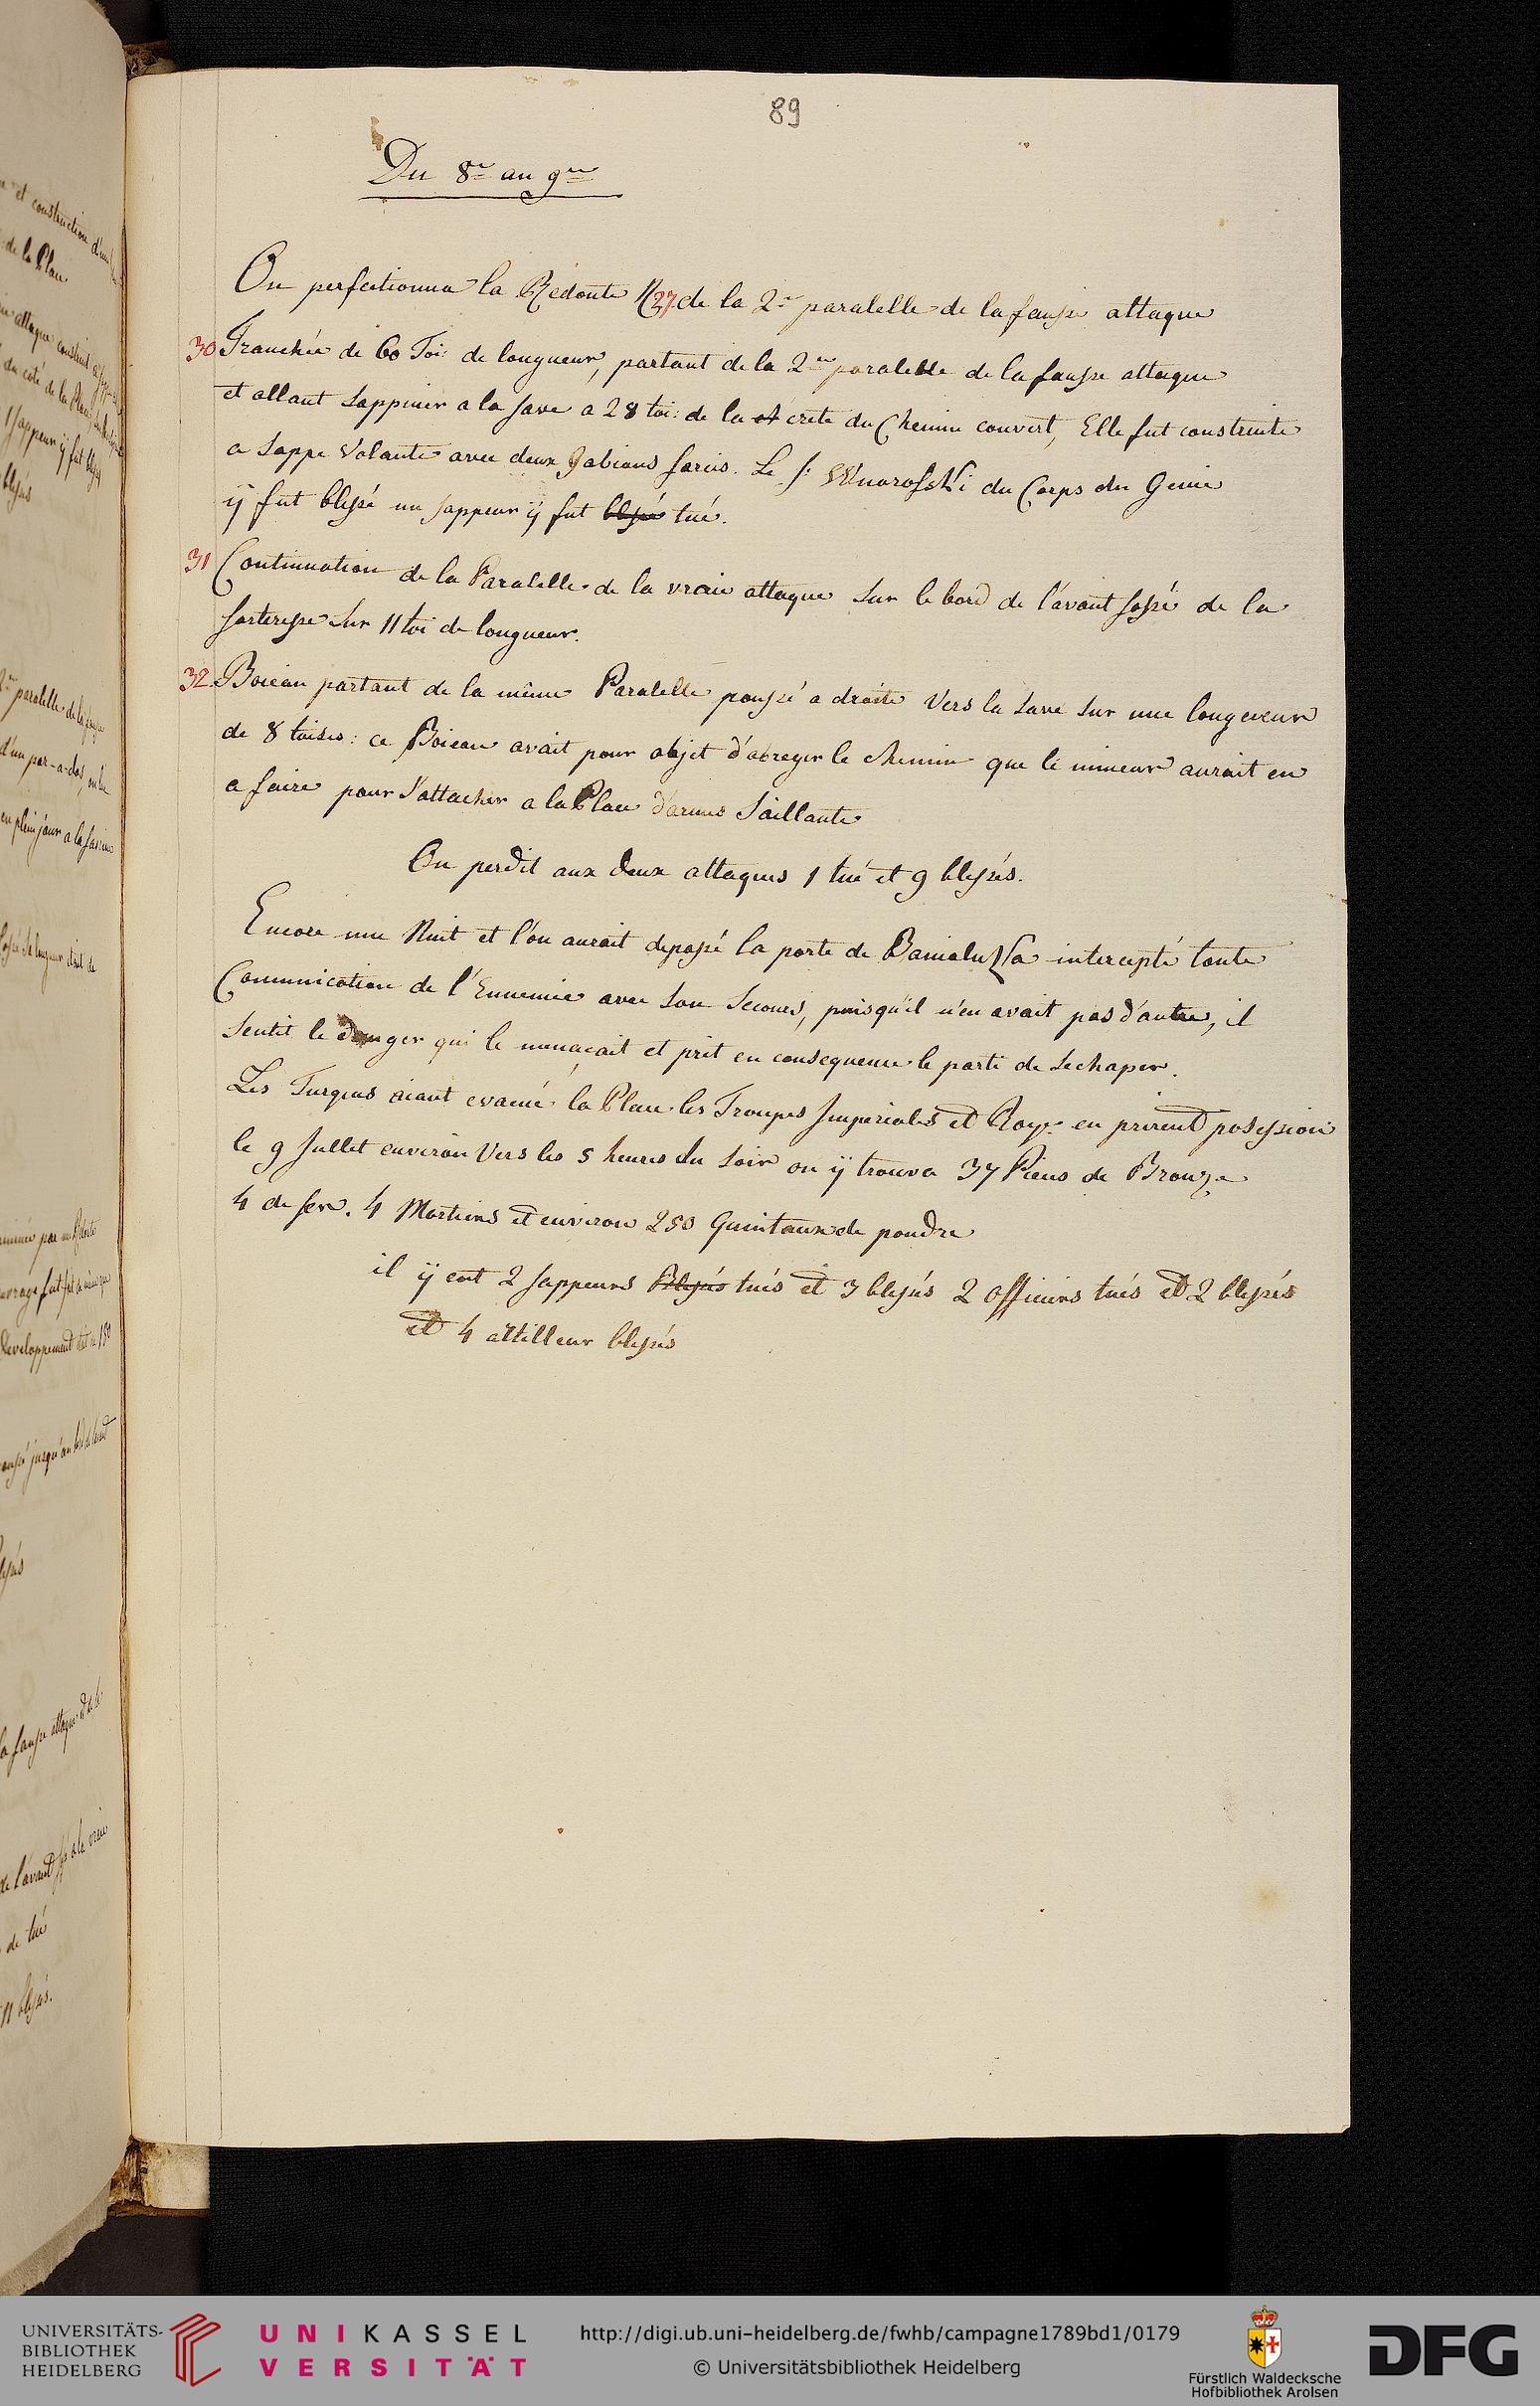 89
Du 8me au 9me
On perfectionna la Redoute N 27 de la 2me paralelle de la fausse attaque
30 Tranchée de 60 Toi: de longueur, partant de la 2me paralelle de la fausse attaque
et allant sappuier a la save a 28 toi: de la et crete du Chemin couvert, Elle fut construite
a Sappe Volante avec deux gabions farcis. Le S: du Corps du Genie
ÿ fut blessé un sappeur ÿ fut blessé tué.
31 Continuation de la Paralelle de la vraie attaque sur le bord de l'avant fossé de la
forteresse sur 11 toi de longueur.
32 Boieau partant de la même Paralelle poussé a droite Vers la Save sur une longeueur
de 8 toises: ce Boieau avait pour objet d'abreger le chemin que le mineur aurait eu
a faire pour S'attacher a la Place d'armes Saillante
On perdit aux deux attaques 1 tué et 9 blessés.
Encore une Nuit et l'on aurait depassé la porte de Banialuka intercepté toute
Comunication de l'Ennemie avec son Secours, puisqu'il n'en avait pas d'autre, il
sentit le danger qui le menacait et prit en consequence le parti de sechaper.
Les Turques aiant evacué la Place les Troupes Imperiales et Roy: en prirent possession
le 9 Jullet environ Vers les 5 heures du soir on ÿ trouva 37 Pieces de Bronze
4 de fer. 4 Mortiers et environ 250 Quintaux de poudre
il ÿ eut 2 sappeurs Blessés tués et 3 blessés 2 officiers tués et 2 blessés
et 4 attilleur blessés
UNIVERSITÄTS-
BIBLIOTHEK
HEIDELBERG
UNIKASSEL
VERSITÄT
http://digi.ub.uni-heidelberg.de/fwhb/campagne1789bd1/0179
© Universitätsbibliothek Heidelberg
Fürstlich Waldecksche
Hofbibliothek Arolsen
DFG